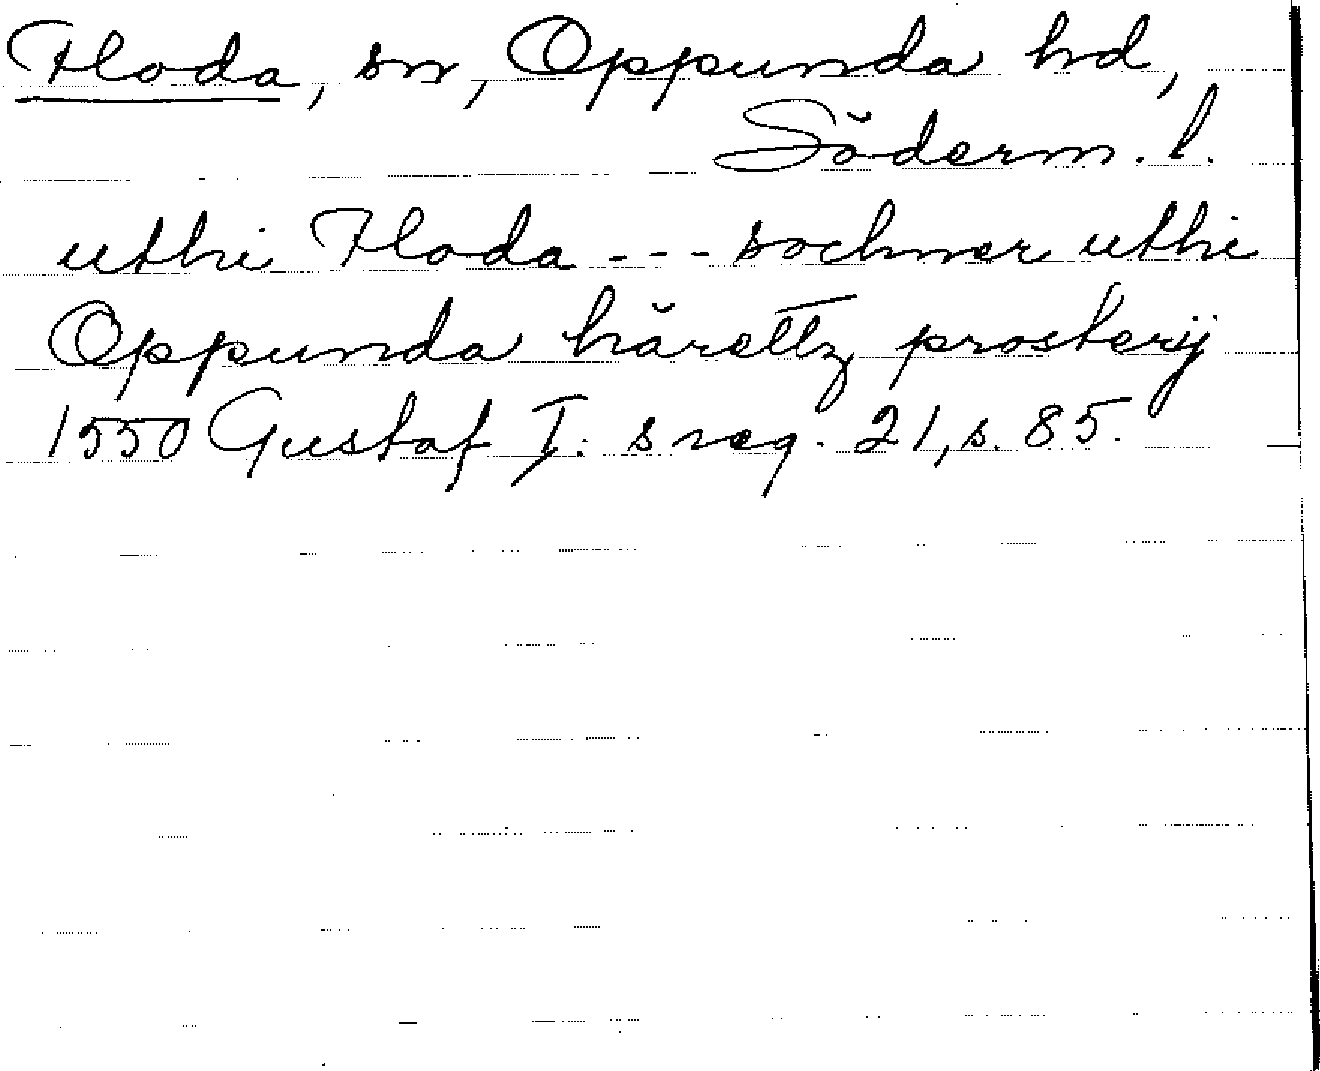 Floda, sn, Oppunda hd,
Söderm. l.
uthi Floda --- sochner uthi
Oppunda härettz prosterij
1550 Gustaf I:s reg. 21, s. 85.